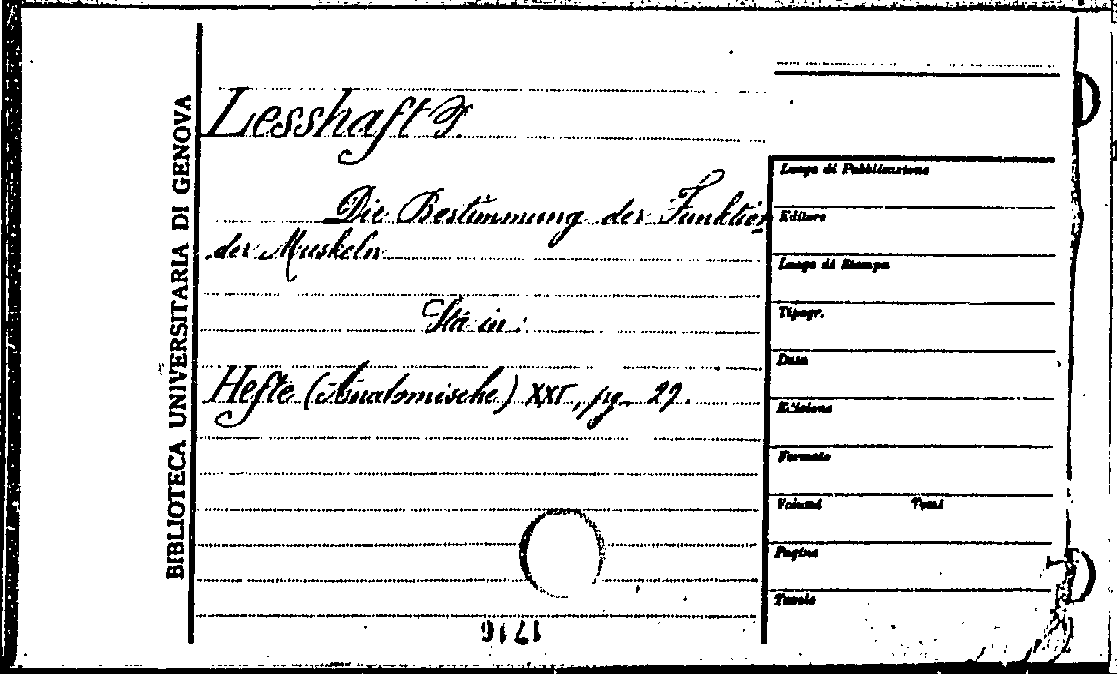 BIBLIOTECA UNIVERSITARIA DI GENOVA
Lesshaft
Die Bestimmung der Funktion
der Muskeln
Sta in:
Hefte (Anatomische) pg. 29.
Luogo di Pubblicazione
Editore
Luogo di Stampa
Tipogr.
Data
Edizione
Formato
Volumi Tomi
Pagine
Tavole
1716